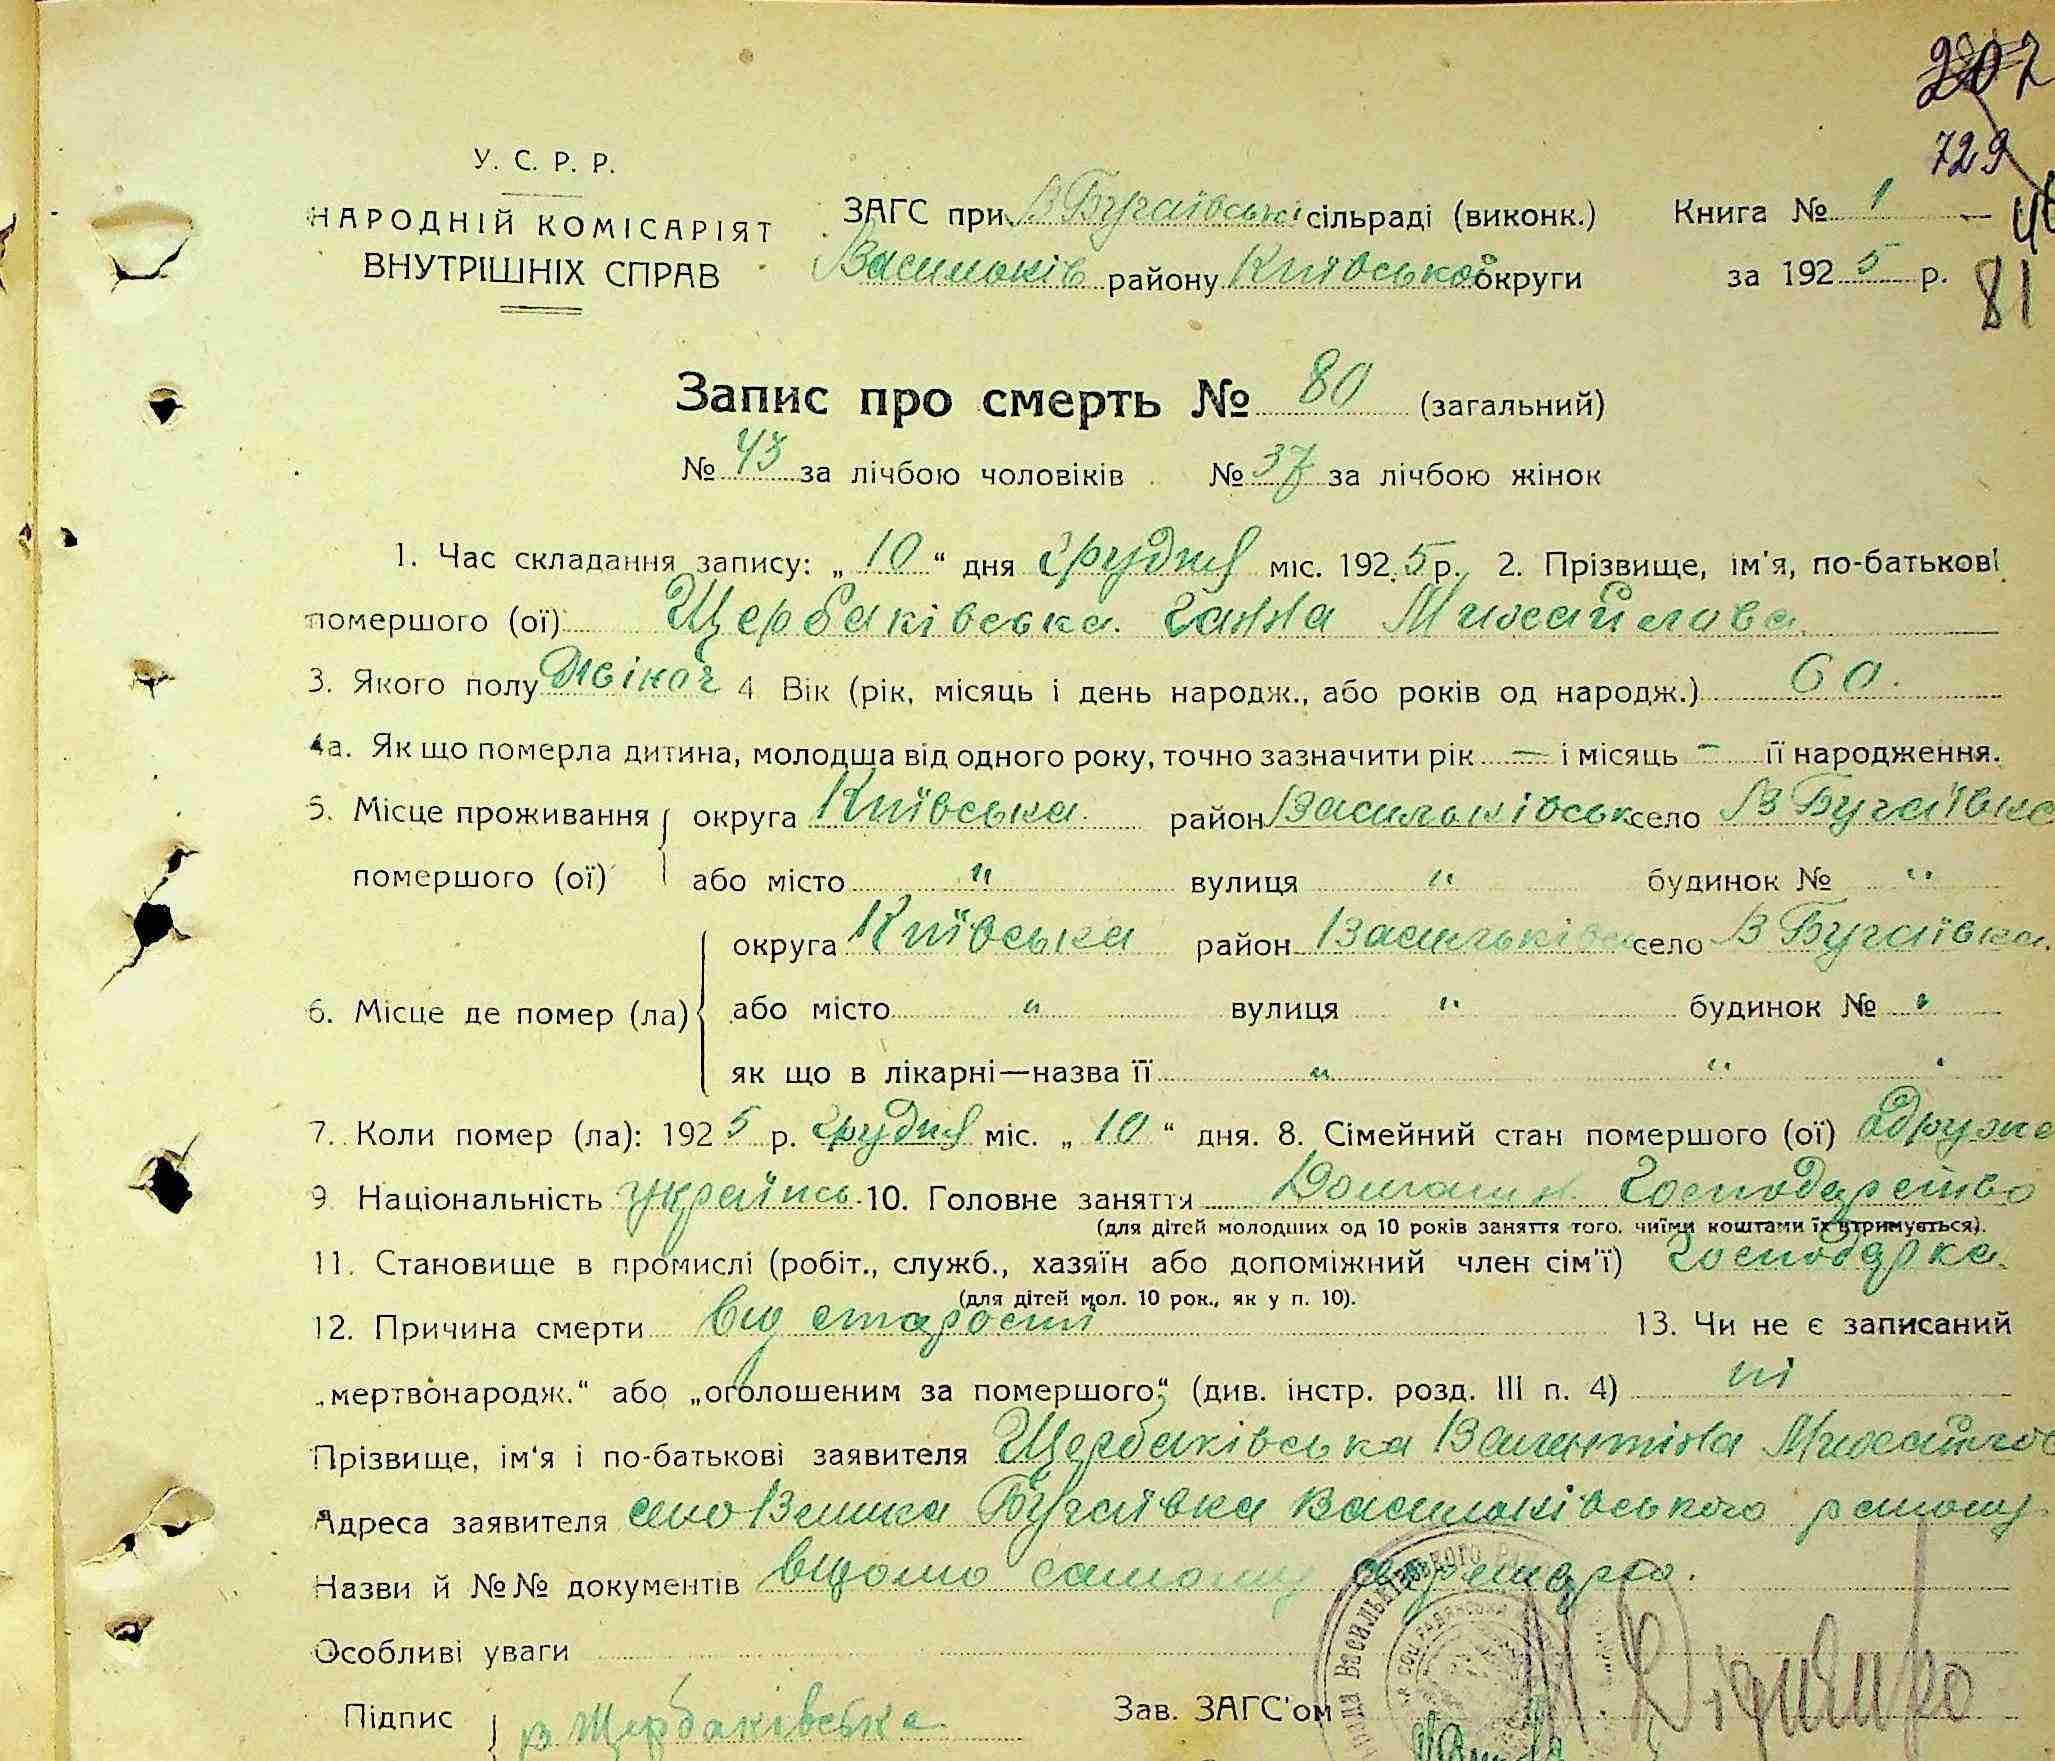 207
729
У. С. Р. Р.
НАРОДНІЙ КОМІСАРІЯТ
ВНУТРІШНІХ СПРАВ
ЗАГС при В Бугаївські сільраді (виконк.) Книга № 1
Васильків району Київської округи за 1925 р.
81
Запис про смерть № 80 (загальний)
№ 43 за лічбою чоловіків № 37 за лічбою жінок
1. Час складання запису: „10“ дня Грудня міс. 1925 р. 2. Прізвище, ім'я, по-батькові
помершого (ої) Щербаківська Ганна Михайлова
3. Якого полу Жіноч 4 Вік (рік, місяць і день народж., або років од народж.) 60.
4а. Як що померла дитина, молодша від одного року, точно зазначити рік — і місяць — її народження.
5. Місце проживання округа Київська район Васильківськ село В Бугаївка
помершого (ої) або місто " вулиця " будинок № "
округа Київська район Васильківськ село В Бугаївка.
6. Місце де помер (ла) або місто " вулиця " будинок № "
як що в лікарні—назва її " " "
7. Коли помер (ла): 1925 р. Грудня міс. „10“ дня. 8. Сімейний стан помершого (ої) Одруже
9 Національність українсь. 10. Головне заняття Домашн. Господарство
(для дітей молодших од 10 років заняття того, чиїми коштами їх втримується).
11. Становище в промислі (робіт., служб., хазяїн або допоміжний член сім'ї) Господарка.
(для дітей мол. 10 рок., як у п. 10).
12. Причина смерти від старости 13. Чи не є записаний
„мертвонародж.“ або „оголошеним за помершого“ (див. інстр. розд. III п. 4) ні
Прізвище, ім'я і по-батькові заявителя Щербаківська Валентіна Михайлов
Адреса заявителя село Велика Бугаївка Васильківського району
Назви й №№ документів відомо самому секретарю.
Особливі уваги
Підпис В Щербаківська Зав. ЗАГС'ом